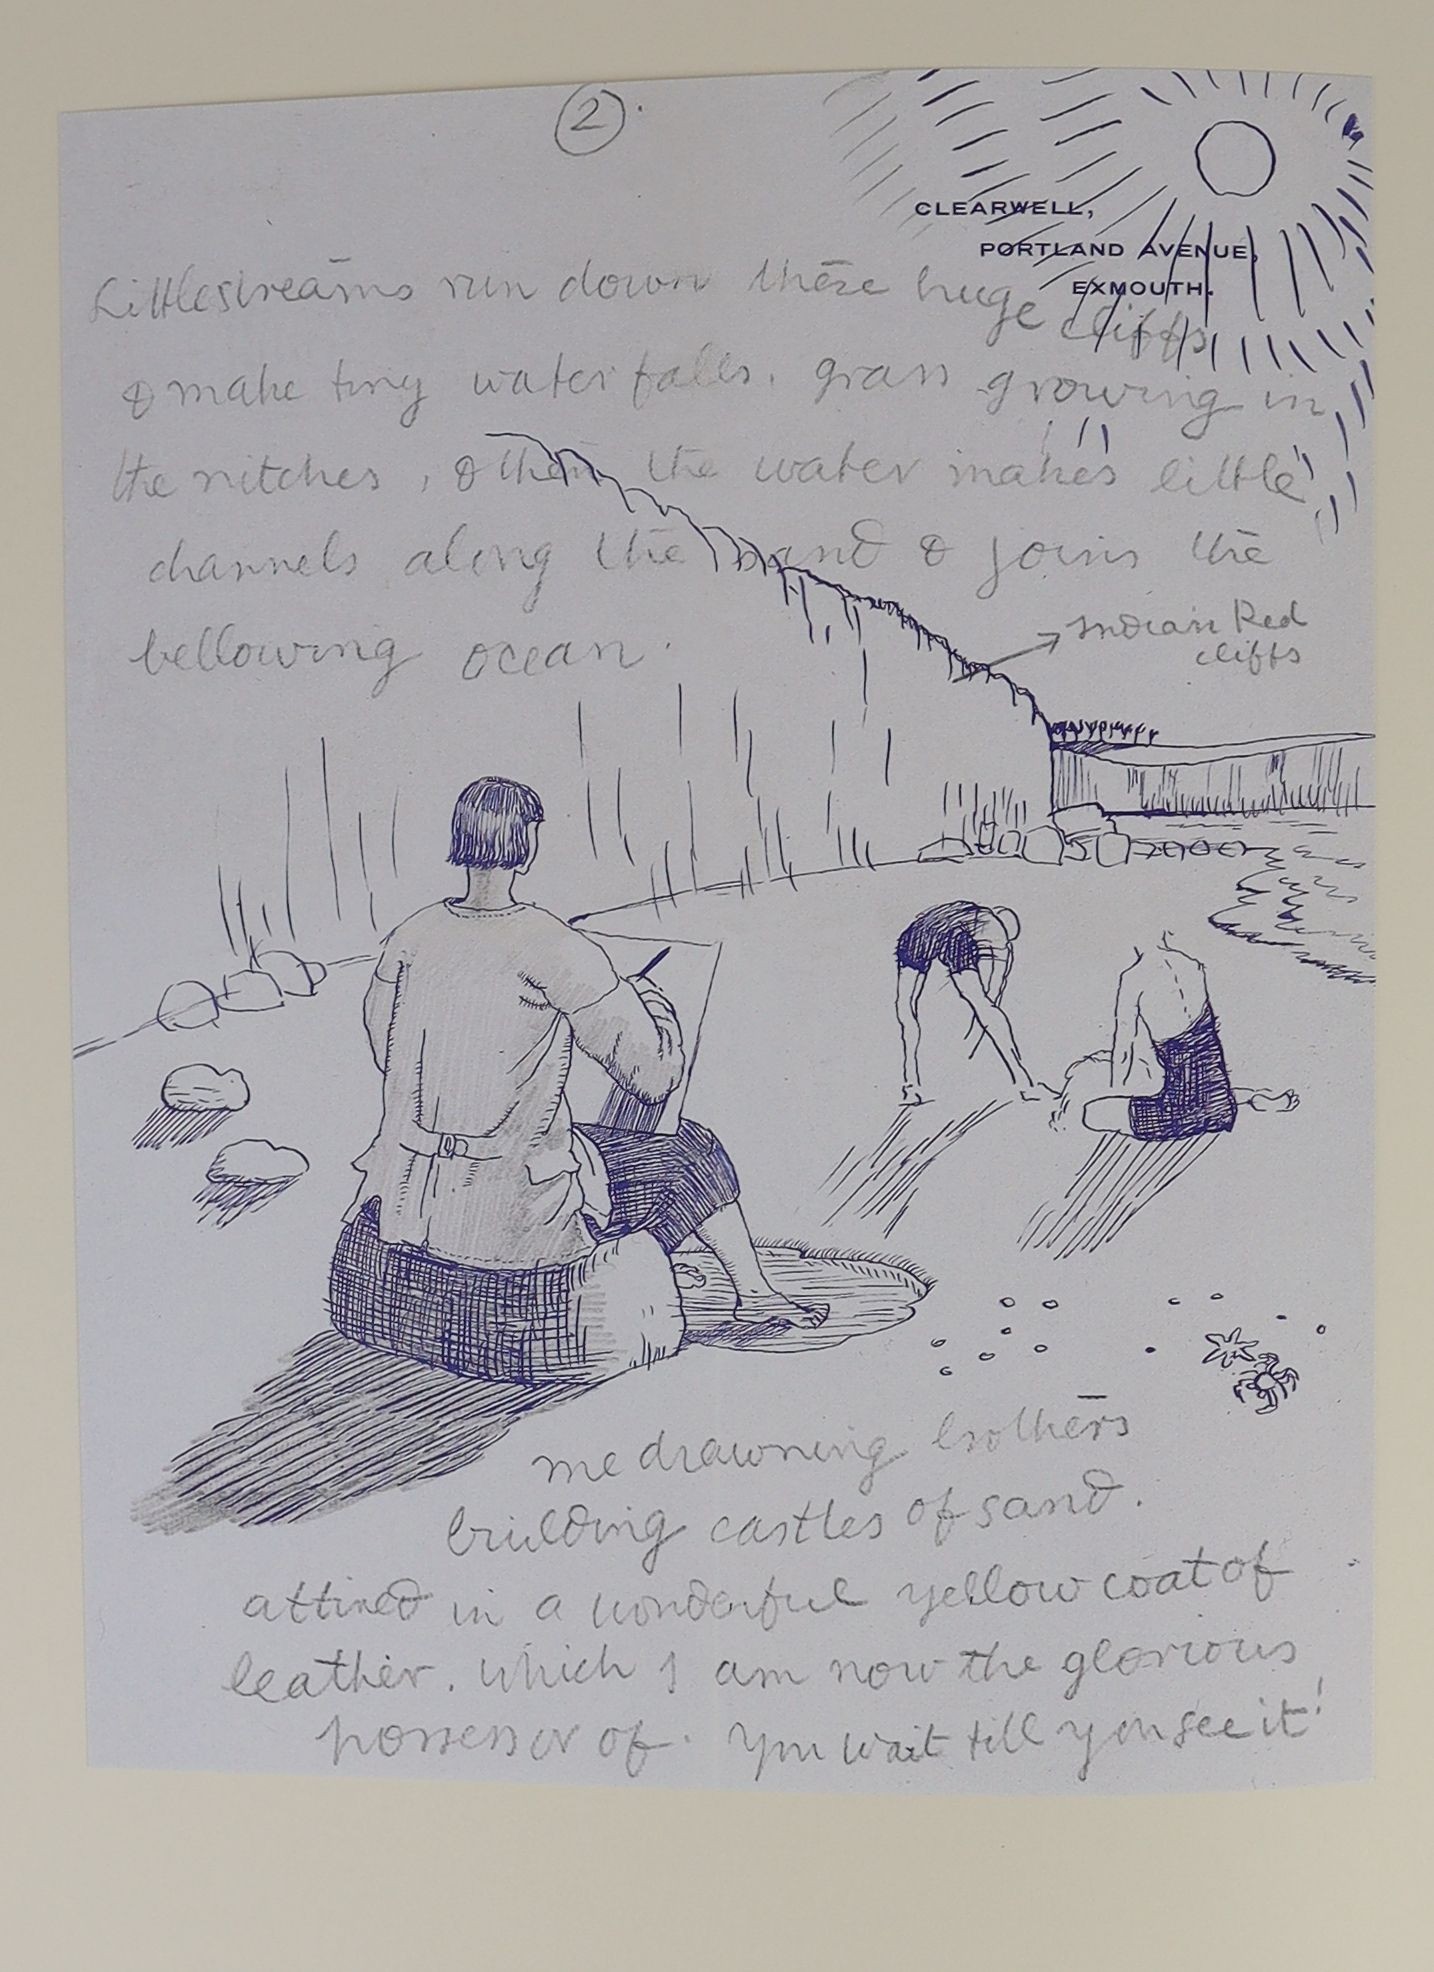 2
CLEARWELL,
PORTLAND AVENUE,
EXMOUTH.
Little streams run down these huge cliffs
& make tiny waterfalls. grass growing in
the nitches, & then the water makes little
channels along the sand & joins the
bellowing ocean.
Indian Red
cliffs
me drawning brothers
building castles of sand.
attired in a wonderful yellow coat of
leather. which I am now the glorious
possessor of. You wait till you see it!